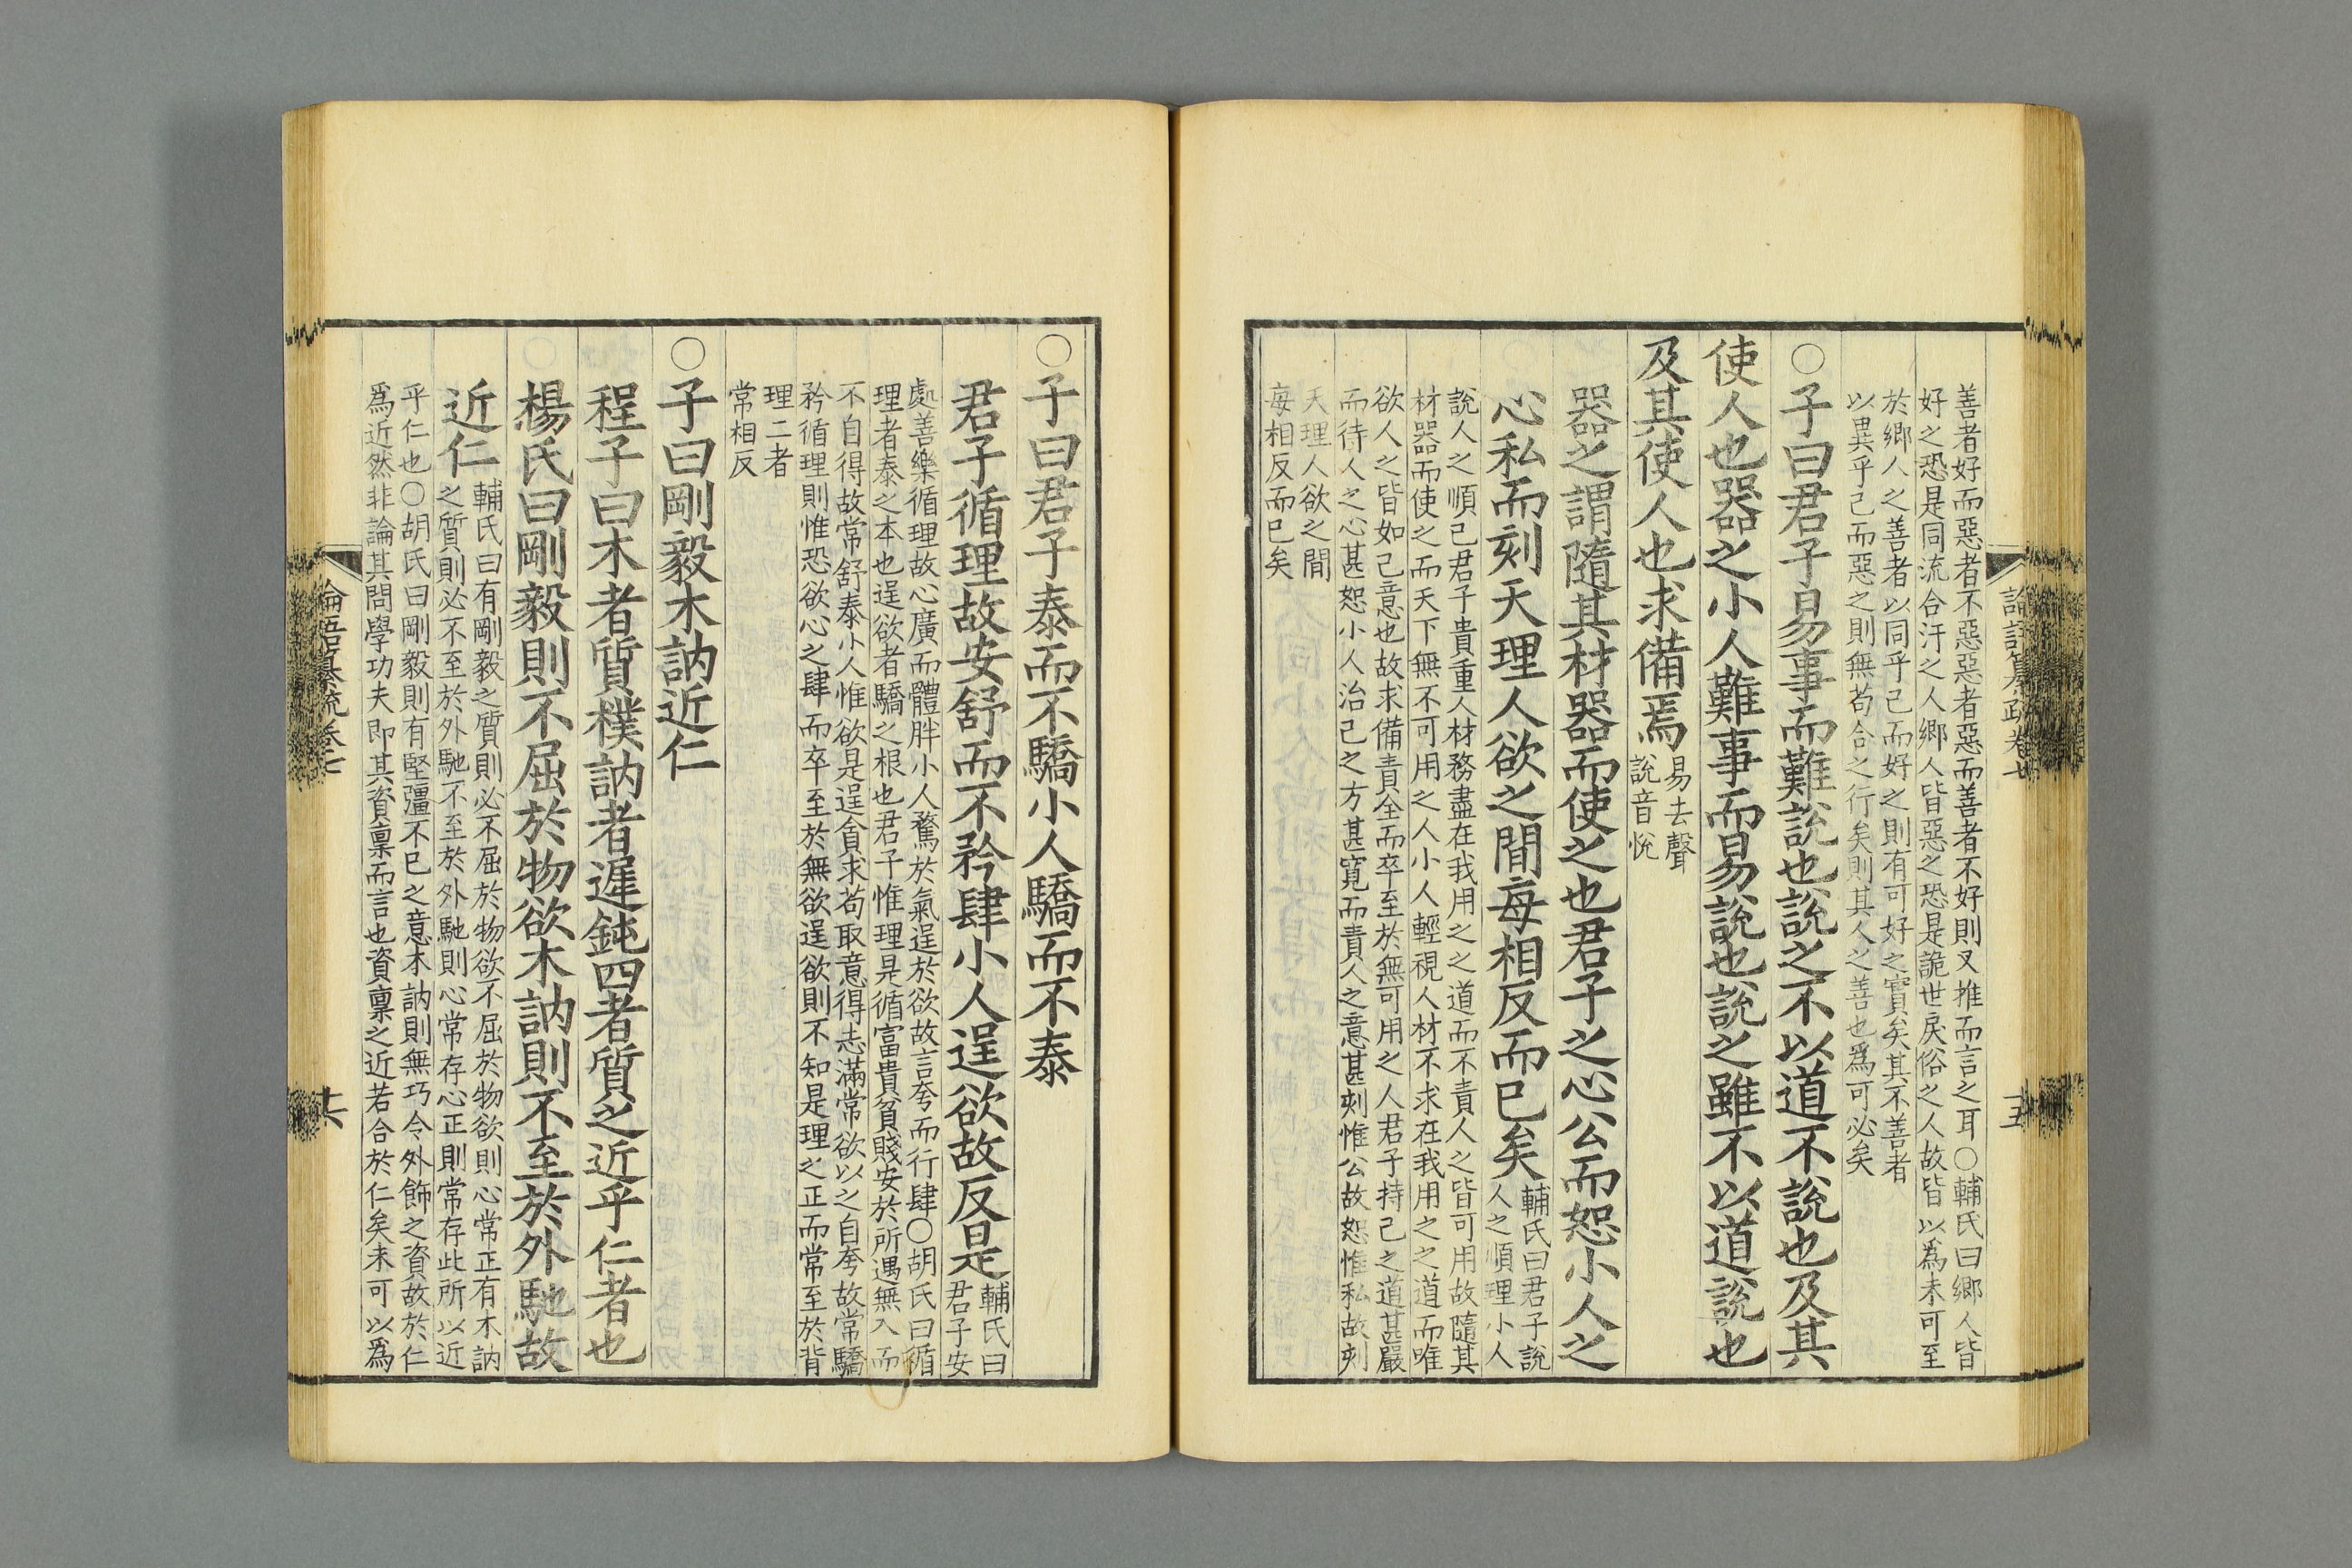 善者好而惡者不惡惡者惡而善者不好則又推而言之耳○輔氏曰鄉人皆
好之恐是同流合汙之人鄉人皆惡之恐是詭世戾俗之人故皆以爲未可至
於鄉人之善者以同乎己而好之則有可好之實矣其不善者
以異乎己而惡之則無苟合之行矣則其人之善也爲可必矣
○子曰君子易事而難說也說之不以道不說也及其
使人也器之小人難事而易說也說之雖不以道說也
及其使人也求備焉
易去聲
說音悅
器之謂隨其材器而使之也君子之心公而恕小人之
心私而刻天理人欲之間每相反而已矣
輔氏曰君子說
人之順理小人
說人之順己君子貴重人材務盡在我用之之道而不責人之皆可用故隨其
材器而使之而天下無不可用之人小人輕視人材不求在我用之之道而唯
欲人之皆如己意也故求備責全而卒至於無可用之人君子持己之道甚嚴
而待人之心甚恕小人治己之方甚寬而責人之意甚刻惟公故恕惟私故刻
天理人欲之間
每相反而已矣
論語纂疏卷七
五
○子曰君子泰而不驕小人驕而不泰
君子循理故安舒而不矜肆小人逞欲故反是
輔氏曰
君子安
處善樂循理故心廣而體胖小人騖於氣逞於欲故言夸而行肆○胡氏曰循
理者泰之本也逞欲者驕之根也君子惟理是循富貴貧賤安於所遇無入而
不自得故常舒泰小人惟欲是逞貪求苟取意得志滿常欲以之自夸故常驕
矜循理則惟恐欲心之肆而卒至於無欲逞欲則不知是理之正而常至於背
理二者
常相反
○子曰剛毅木訥近仁
程子曰木者質樸訥者遲鈍四者質之近乎仁者也
楊氏曰剛毅則不屈於物欲木訥則不至於外馳故
近仁
輔氏曰有剛毅之質則必不屈於物欲不屈於物欲則心常正有木訥
之質則必不至於外馳不至於外馳則心常存心正則常存此所以近
乎仁也○胡氏曰剛毅則有堅彊不已之意木訥則無巧令外飾之資故於仁
爲近然非論其問學功夫即其資稟而言也資稟之近若合於仁矣未可以爲
論語纂疏卷七